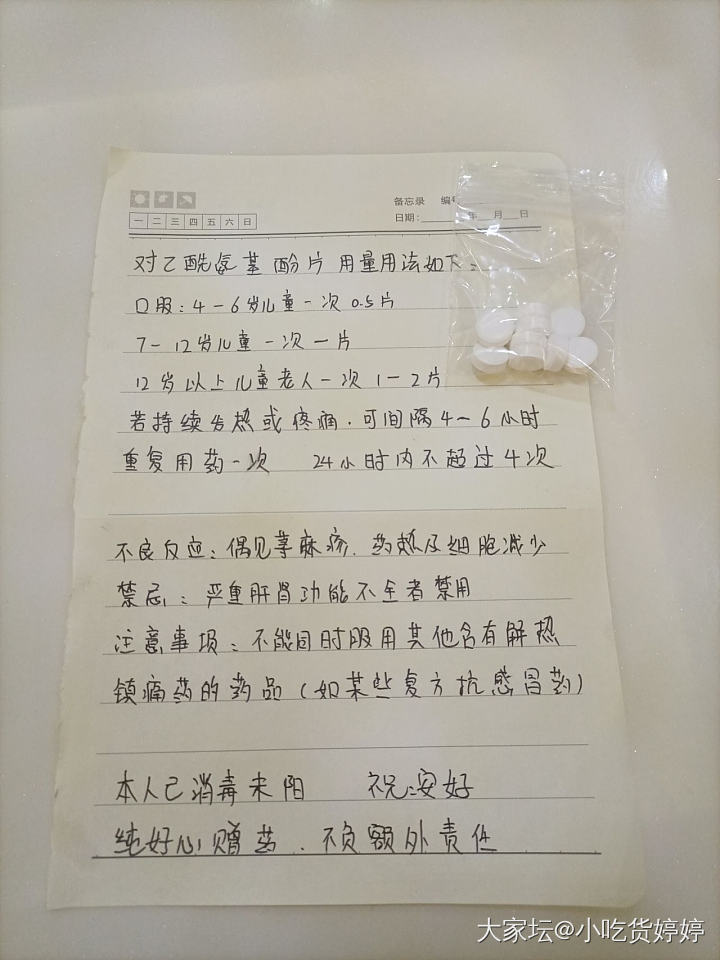 备忘录 编号
一 二 三 四 五 六 日
日期: 年 月 日
对乙酰氨基酚片 用量用法如下:
口服:4-6岁儿童一次0.5片
7-12岁儿童一次一片
12岁以上儿童老人一次1-2片
若持续发热或疼痛.可间隔4-6小时
重复用药一次 24小时内不超过4次
不良反应:偶见荨麻疹.药热及细胞减少
禁忌:严重肝肾功能不全者禁用
注意事项:不能同时服用其他含有解热
镇痛药的药品(如某些复方抗感冒药)
本人已消毒未阳 祝:安好
纯好心赠药.不负额外责任
大家坛@小吃货婷婷